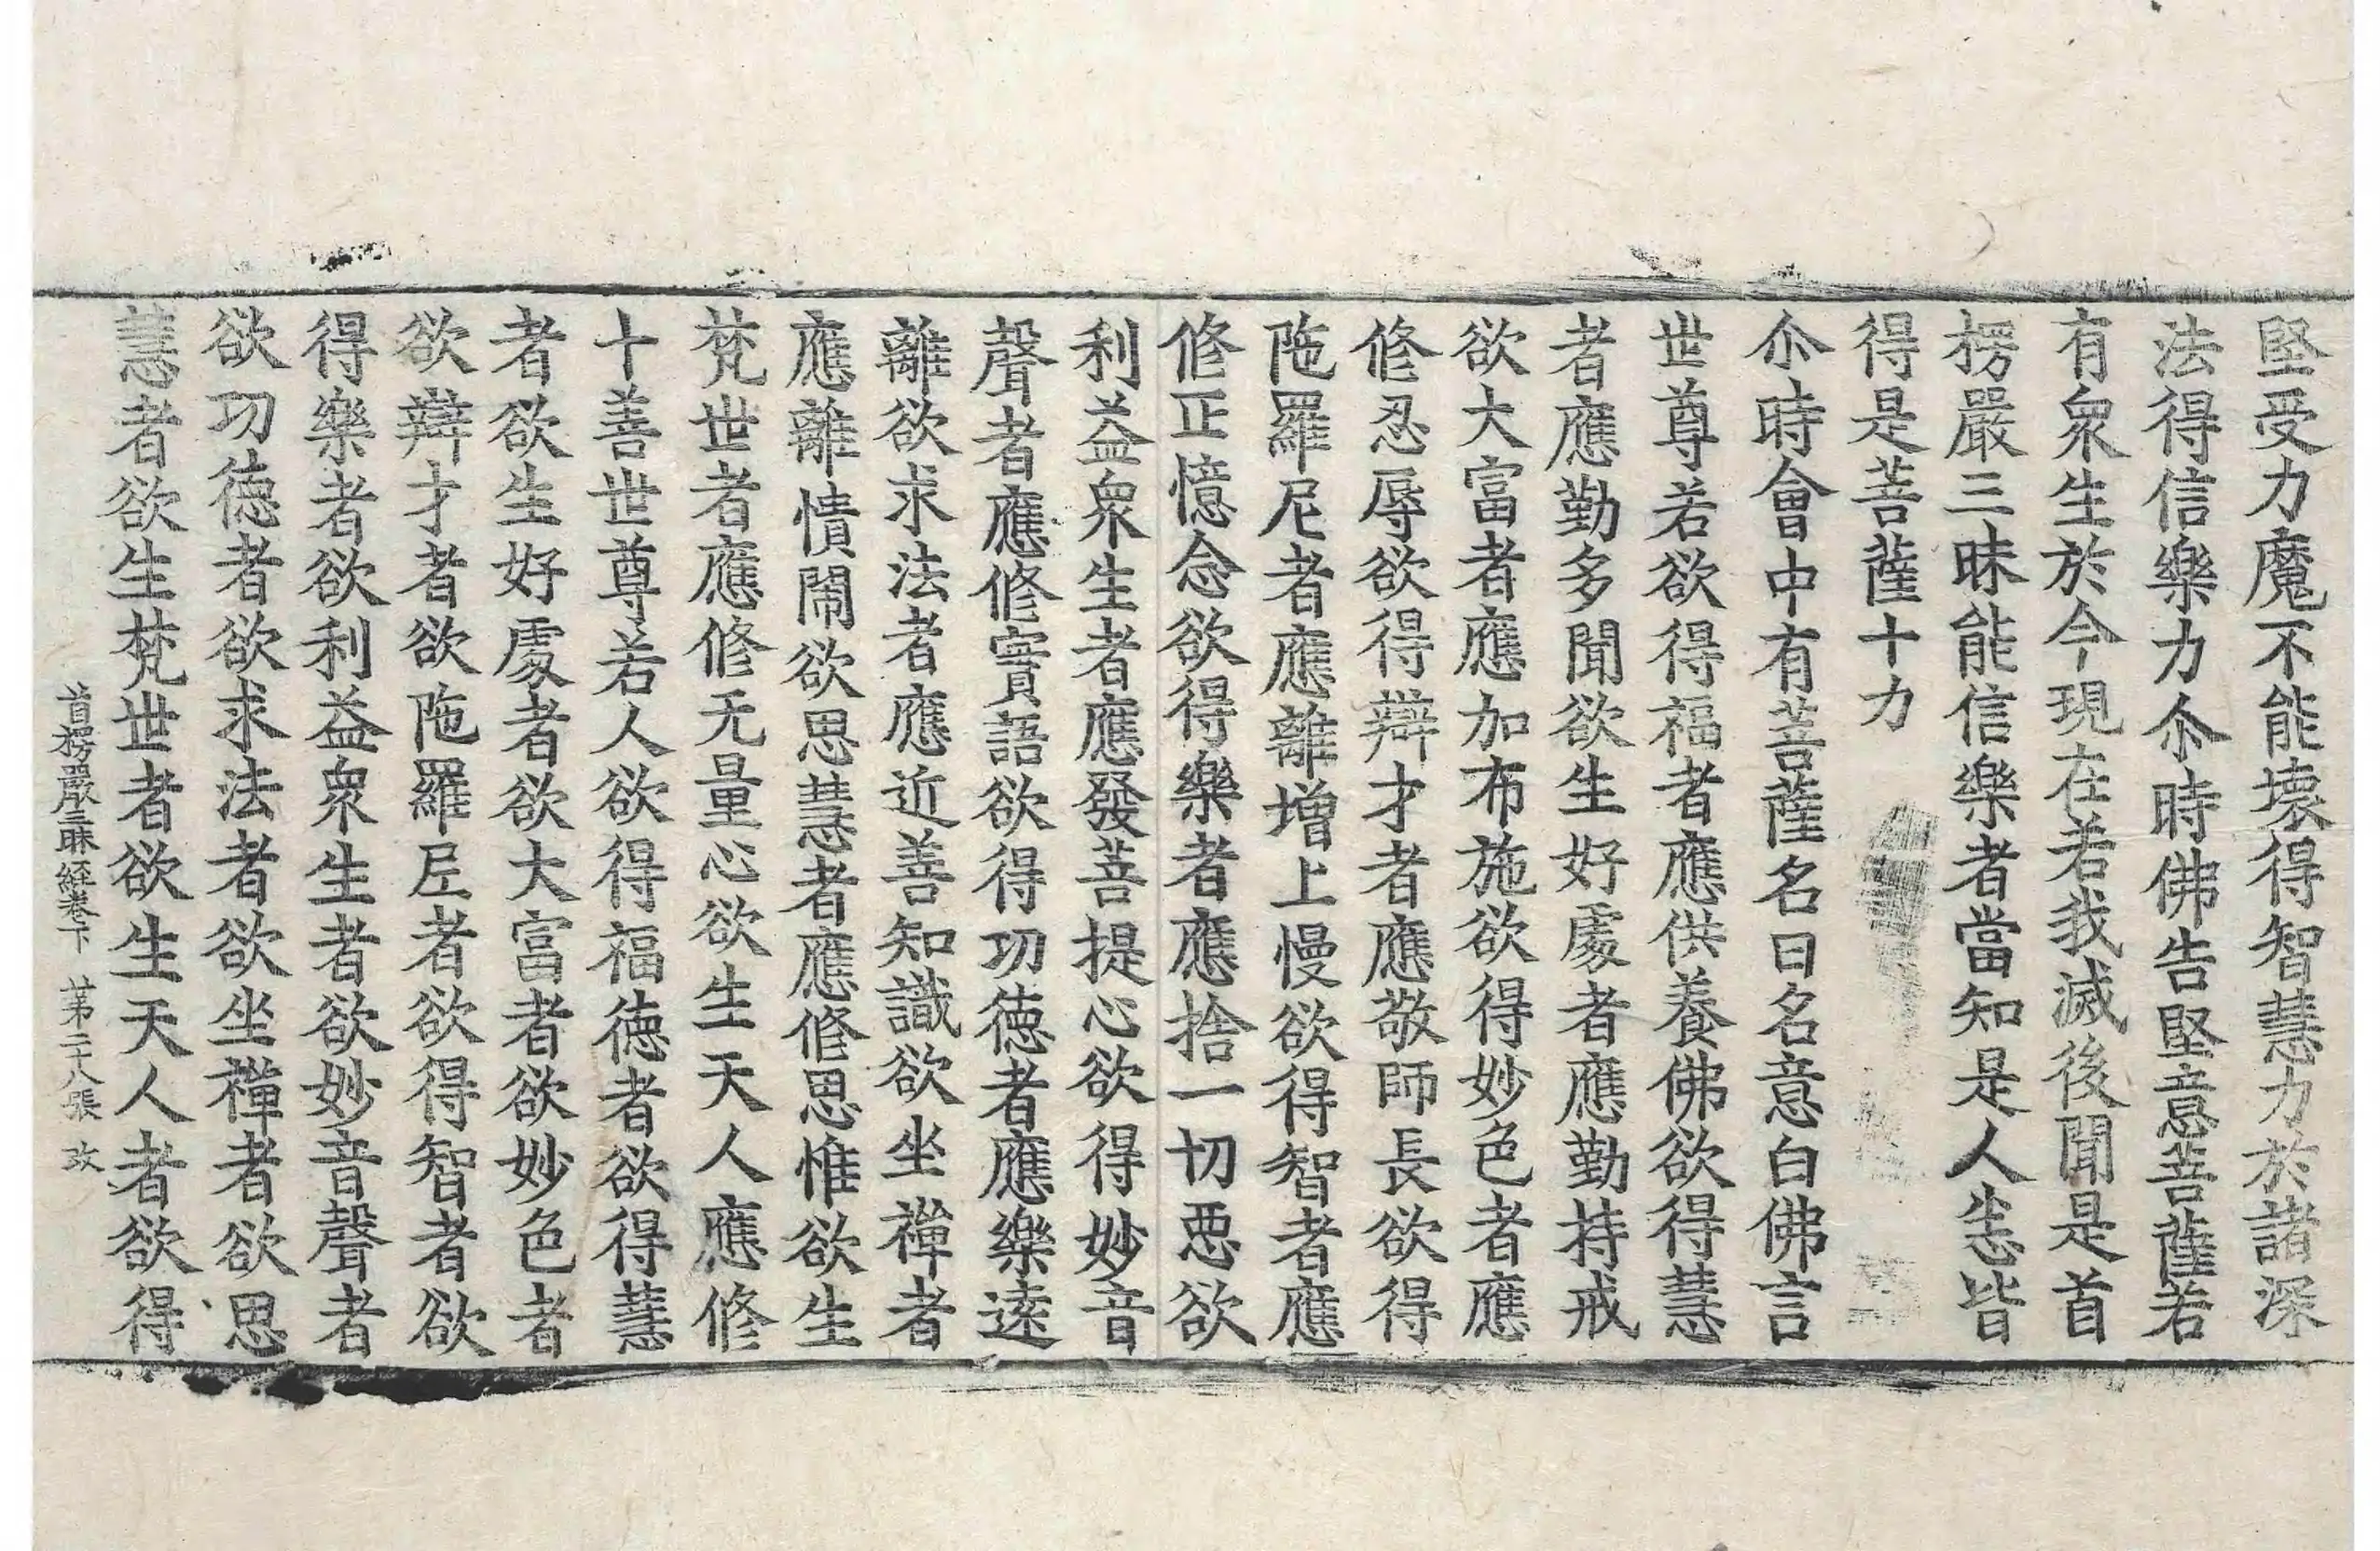 堅受力魔不能壞得智慧力於諸深
法得信樂力尒時佛告堅意菩薩若
有衆生於今現在若我滅後聞是首
楞嚴三昧能信樂者當知是人悉皆
得是菩薩十力
尒時會中有菩薩名曰名意白佛言
世尊若欲得福者應供養佛欲得慧
者應勤多聞欲生好處者應勤持戒
欲大富者應加布施欲得妙色者應
修忍辱欲得辯才者應敬師長欲得
陁羅尼者應離增上慢欲得智者應
修正憶念欲得樂者應捨一切惡欲
利益衆生者應發菩提心欲得妙音
聲者應修實語欲得功德者應樂遠
離欲求法者應近善知識欲坐禪者
應離憒閙欲思慧者應修思惟欲生
梵世者應修无量心欲生天人應修
十善世尊若人欲得福德者欲得慧
者欲生好處者欲大富者欲妙色者
欲辯才者欲陁羅尼者欲得智者欲
得樂者欲利益衆生者欲妙音聲者
欲功德者欲求法者欲坐禪者欲思
慧者欲生梵世者欲生天人者欲得
首楞嚴三昧經卷下 第二十八張 改